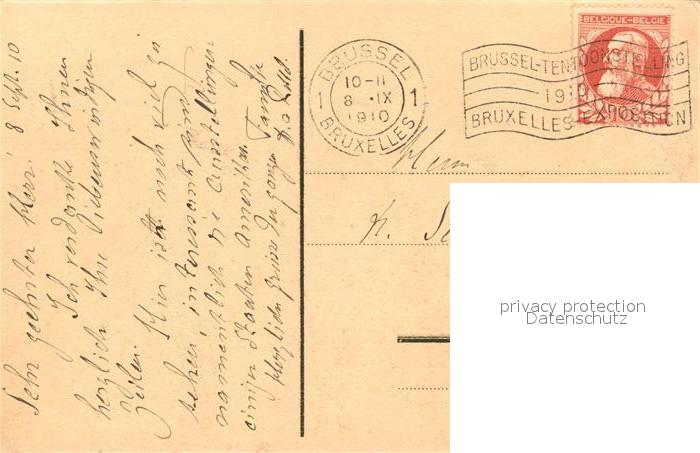 8 Sept. 10
Sehr geehrter Herr!
Ich verdanke Ihnen
herzlich Ihre liebenswürdigen
Zeilen. Hier ist noch viel zu
sehen, interessant sind
namentlich die Ausstellungen
einiger Staaten Amerikas.
Herzliche Grüsse der ganzen Familie
BRUSSEL
10-11
1 8 .IX 1
1910
BRUXELLES
BELGIQUE-BELGIE
BRUSSEL-TENTOONSTELLING
1910
BRUXELLES-EXPOSITION
10
Herrn
privacy protection
Datenschutz